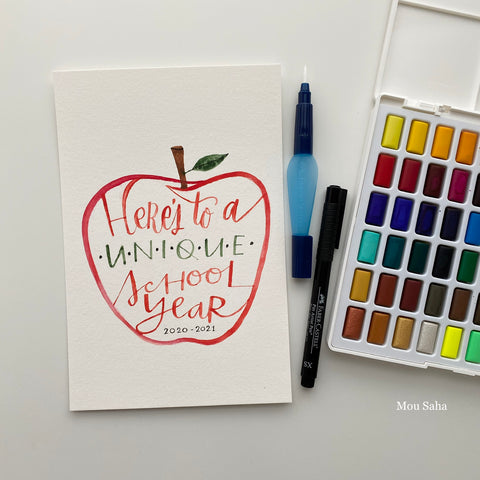 Here's to a
·U·N·I·Q·U·E·
School
Year
2020-2021
FABER-CASTELL
XS
Mou Saha